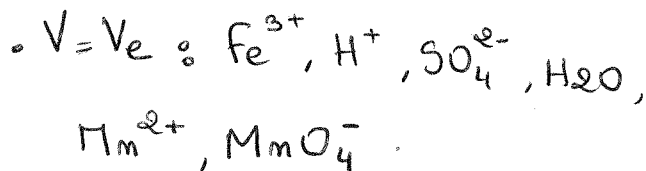 . V = Ve : Fe³⁺, H⁺, SO₄²⁻, H2O,
Mn²⁺, MnO₄⁻.